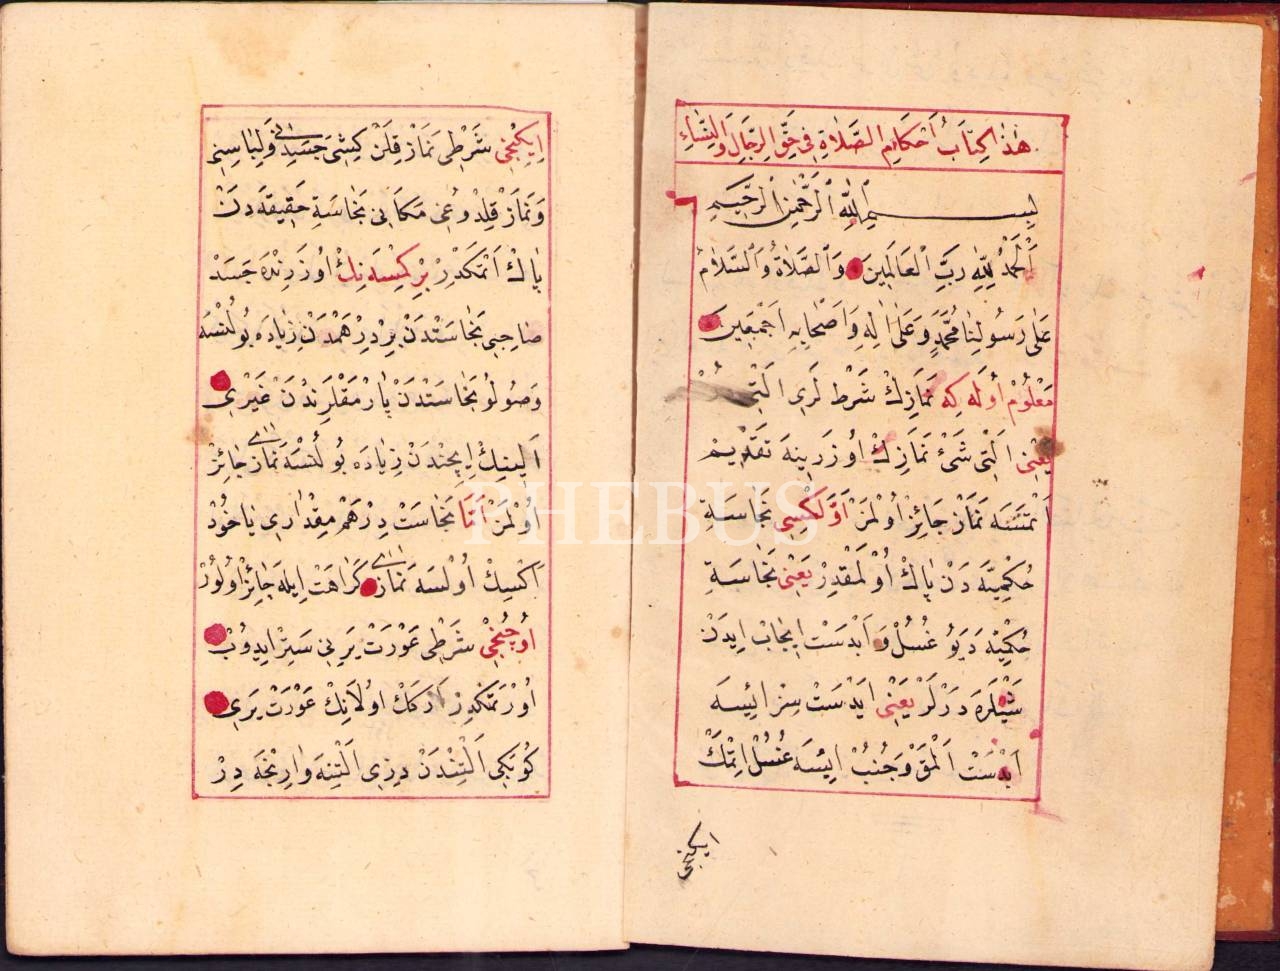 هٰذَا كِتَابُ اَحْكَامِ الصَّلَاةِ فِى حَقِّ الرِّجَالِ وَالنِّسَاءِ
بِسْمِ اللهِ الرَّحْمٰنِ الرَّحِيمِ
اَلْحَمْدُ لِلّٰهِ رَبِّ الْعَالَمِينَ وَالصَّلَاةُ وَالسَّلَامُ
عَلٰى رَسُولِنَا مُحَمَّدٍ وَعَلٰى اٰلِهِ وَاَصْحَابِهِ اَجْمَعِينَ
مَعْلُومْ اُولَه كِه نَمَازِكْ شَرْط لَرِى اَلْتِى
يَعْنِى اَلْتِى شَىْ نَمَازِكْ اُوزَرِينَه تَقْدِيمْ
اَتْمَسَه نَمَازْ جَائِزْ اُولْمَزْ اَوَّلْكِيسِى نَجَاسَةِ
حُكْمِيَّه دَنْ پَاكْ اُولْمَقْدِرْ يَعْنِى نَجَاسَةِ
حُكْمِيَّه دَيُو غُسُلْ وَ اَبْدَسْتْ اِيجَابْ اِيدَنْ
شَيْلَرَه دَرْلَرْ يَعْنِى اَبْدَسْتْ سِزْ اِيسَه
اَبْدَسْتْ اَلْمَقْ وَجُنُبْ اِيسَه غُسُلْ اِتْمَكْ
ايكنجى
اِيكِنْجِى شَرْطِى نَمَازْ قِلَنْ كِشِى جَسَدِنِى وَلِبَاسِنِى
وَنَمَازْ قِلْدُوغِى مَكَانِى نَجَاسَةِ حَقِيقَه دَنْ
پَاكْ اَتْمَكْدِرْ بِرْ كِمْسَه نِكْ اُوزَرِنْدَه جَسَدْ
صَاحِبِى نَجَاسَتْدَنْ بِرْ دِرْهَمْدَنْ زِيَادَه بُولُنْسَه
وَصُولُو نَجَاسَتْدَنْ پَارْمَقْلَرِنْدَنْ غَيْرِى
اَلِينِكْ اِيچِنْدَنْ زِيَادَه بُولُنْسَه نَمَازِى جَائِزْ
اُولْمَزْ اَمَّا نَجَاسَتْ دِرْهَمْ مِقْدَارِى يَاخُودْ
اَكْسِكْ اُولْسَه نَمَازِى كَرَاهَتْ اِيلَه جَائِزْ اُولُورْ
اُوچُنْجِى شَرْطِى عَوْرَتْ يَرِنِى سَتِرْ اِيدُوبْ
اُورْتَمَكْدِرْ اَرْكَكْ اُولَانِكْ عَوْرَتْ يَرِى
كُوبَكِى اَلْتِنْدَنْ دِيزِى اَلْتِنَه وَارِنْجَه دِرْ
PHEBUS